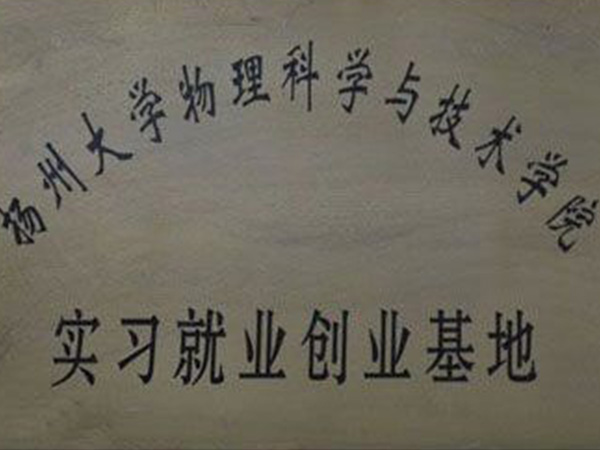 扬州大学物理科学与技术学院
实习就业创业基地